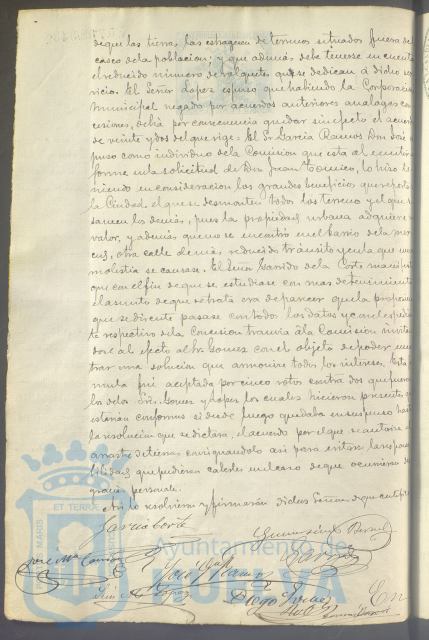 de que las tierras las extraguen de terrenos situados fuera del
casco de la poblacion; y que además debe tenerse en cuenta
el reducido numero de volquetes que se dedican á dicho ser
vicio. El Señor Lopez expuso que habiendo la Corporacion
Municipal negado por acuerdos anteriores analogas con
cesiones, debia por consecuencia quedar sin efecto el acuerdo
de veinte y dos del que rige. El Sr. Garcia Ramos Don José ex
puso como individuo de la Comision que esta al emitir in
forme en la solicitud de Don Juan lo hizo te
niendo en consideracion los grandes beneficios que reporta
la Ciudad el que se desmonten todos los terrenos y el que se
saneen los demás, pues la propiedad urbana adquiere
valor, y además que no se encontró en el barrio de la Mer
ced, otra calle de más reducido tránsito y en la que menos
molestia se causase. El Señor Garrido de la Corte manifestó
que con el fin de que se estudiase con mas detenimiento
el asunto de que se trata era de parecer que la proposicion
que se discute pasase con todos los datos y con el expedien
te respectivo de la Concesion tranvia á la Comision invitan
dose al efecto al Sr. Gomez con el objeto de poder encon
trar una solucion que armonize todos los intereses. Esta
fué aceptada por cinco votos contra dos que fueron
los de los Sres. Gomez y Lopez los cuales hicieron presente que
estarian conformes si desde luego quedaba en suspenso hasta
la resolucion que se dictara, el acuerdo por el que se autoriza el
arrastre de tierras consignandolo asi para evitar la responsa
bilidad que pudiera caberles en el caso de que ocurriera des
gracias personales.
Asi lo resolvieron y firmarán dichos Señores de que certifico
Garcia Corte
José Garcia Ramos
Lopez
Diego
En
Ayuntamiento de
HUELVA